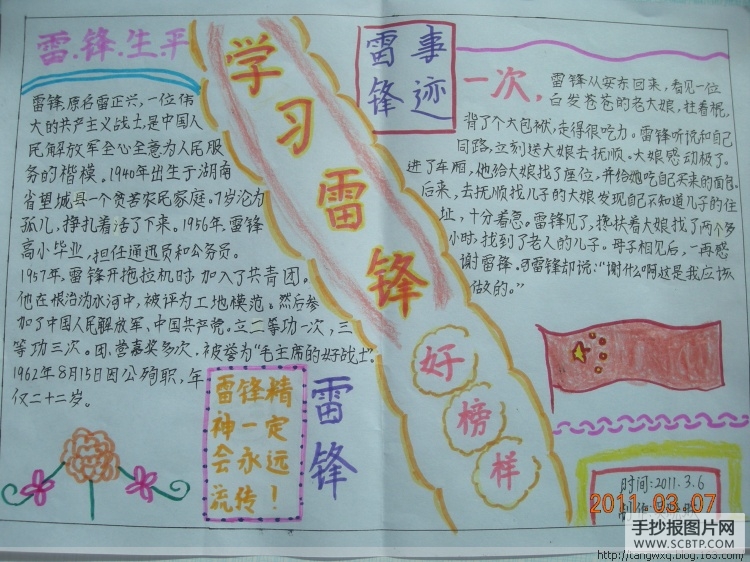 雷锋生平
雷锋,原名雷正兴,一位伟
大的共产主义战士,是中国人
民解放军全心全意为人民服
务的楷模。1940年出生于湖南
省望城县一个贫苦农民家庭。7岁沦为
孤儿,挣扎着活了下来。1956年,雷锋
高小毕业,担任通迅员和公务员。
1957年,雷锋开拖拉机时,加入了共青团。
他在根治沩水河中,被评为工地模范。然后参
加了中国人民解放军、中国共产党。立二等功一次,三
等功三次。团、营嘉奖多次,被誉为“毛主席的好战士”。
1962年8月15日因公殉职,年
仅二十二岁。
雷锋精
神一定
会永远
流传!
雷锋
学习雷锋
好榜样
雷锋
事迹
一次,
雷锋从安东回来,看见一位
白发苍苍的老大娘,拄着棍,
背了个大包袱,走得很吃力。雷锋听说和自己
同路,立刻送大娘去抚顺。大娘感动极了。
进了车厢,他给大娘找了座位,并给她吃自己买来的面包。
后来,去抚顺找儿子的大娘发现自己不知道儿子的住
址,十分着急。雷锋见了,搀扶着大娘找了两个多
小时,找到了老人的儿子。母子相见后,一再感
谢雷锋。可雷锋却说:“谢什么啊这是我应该
做的。”
时间:2011.3.6
2011.03.07
手抄报图片网
WWW.SCBTP.COM
http://tangwxq.blog.163.com/